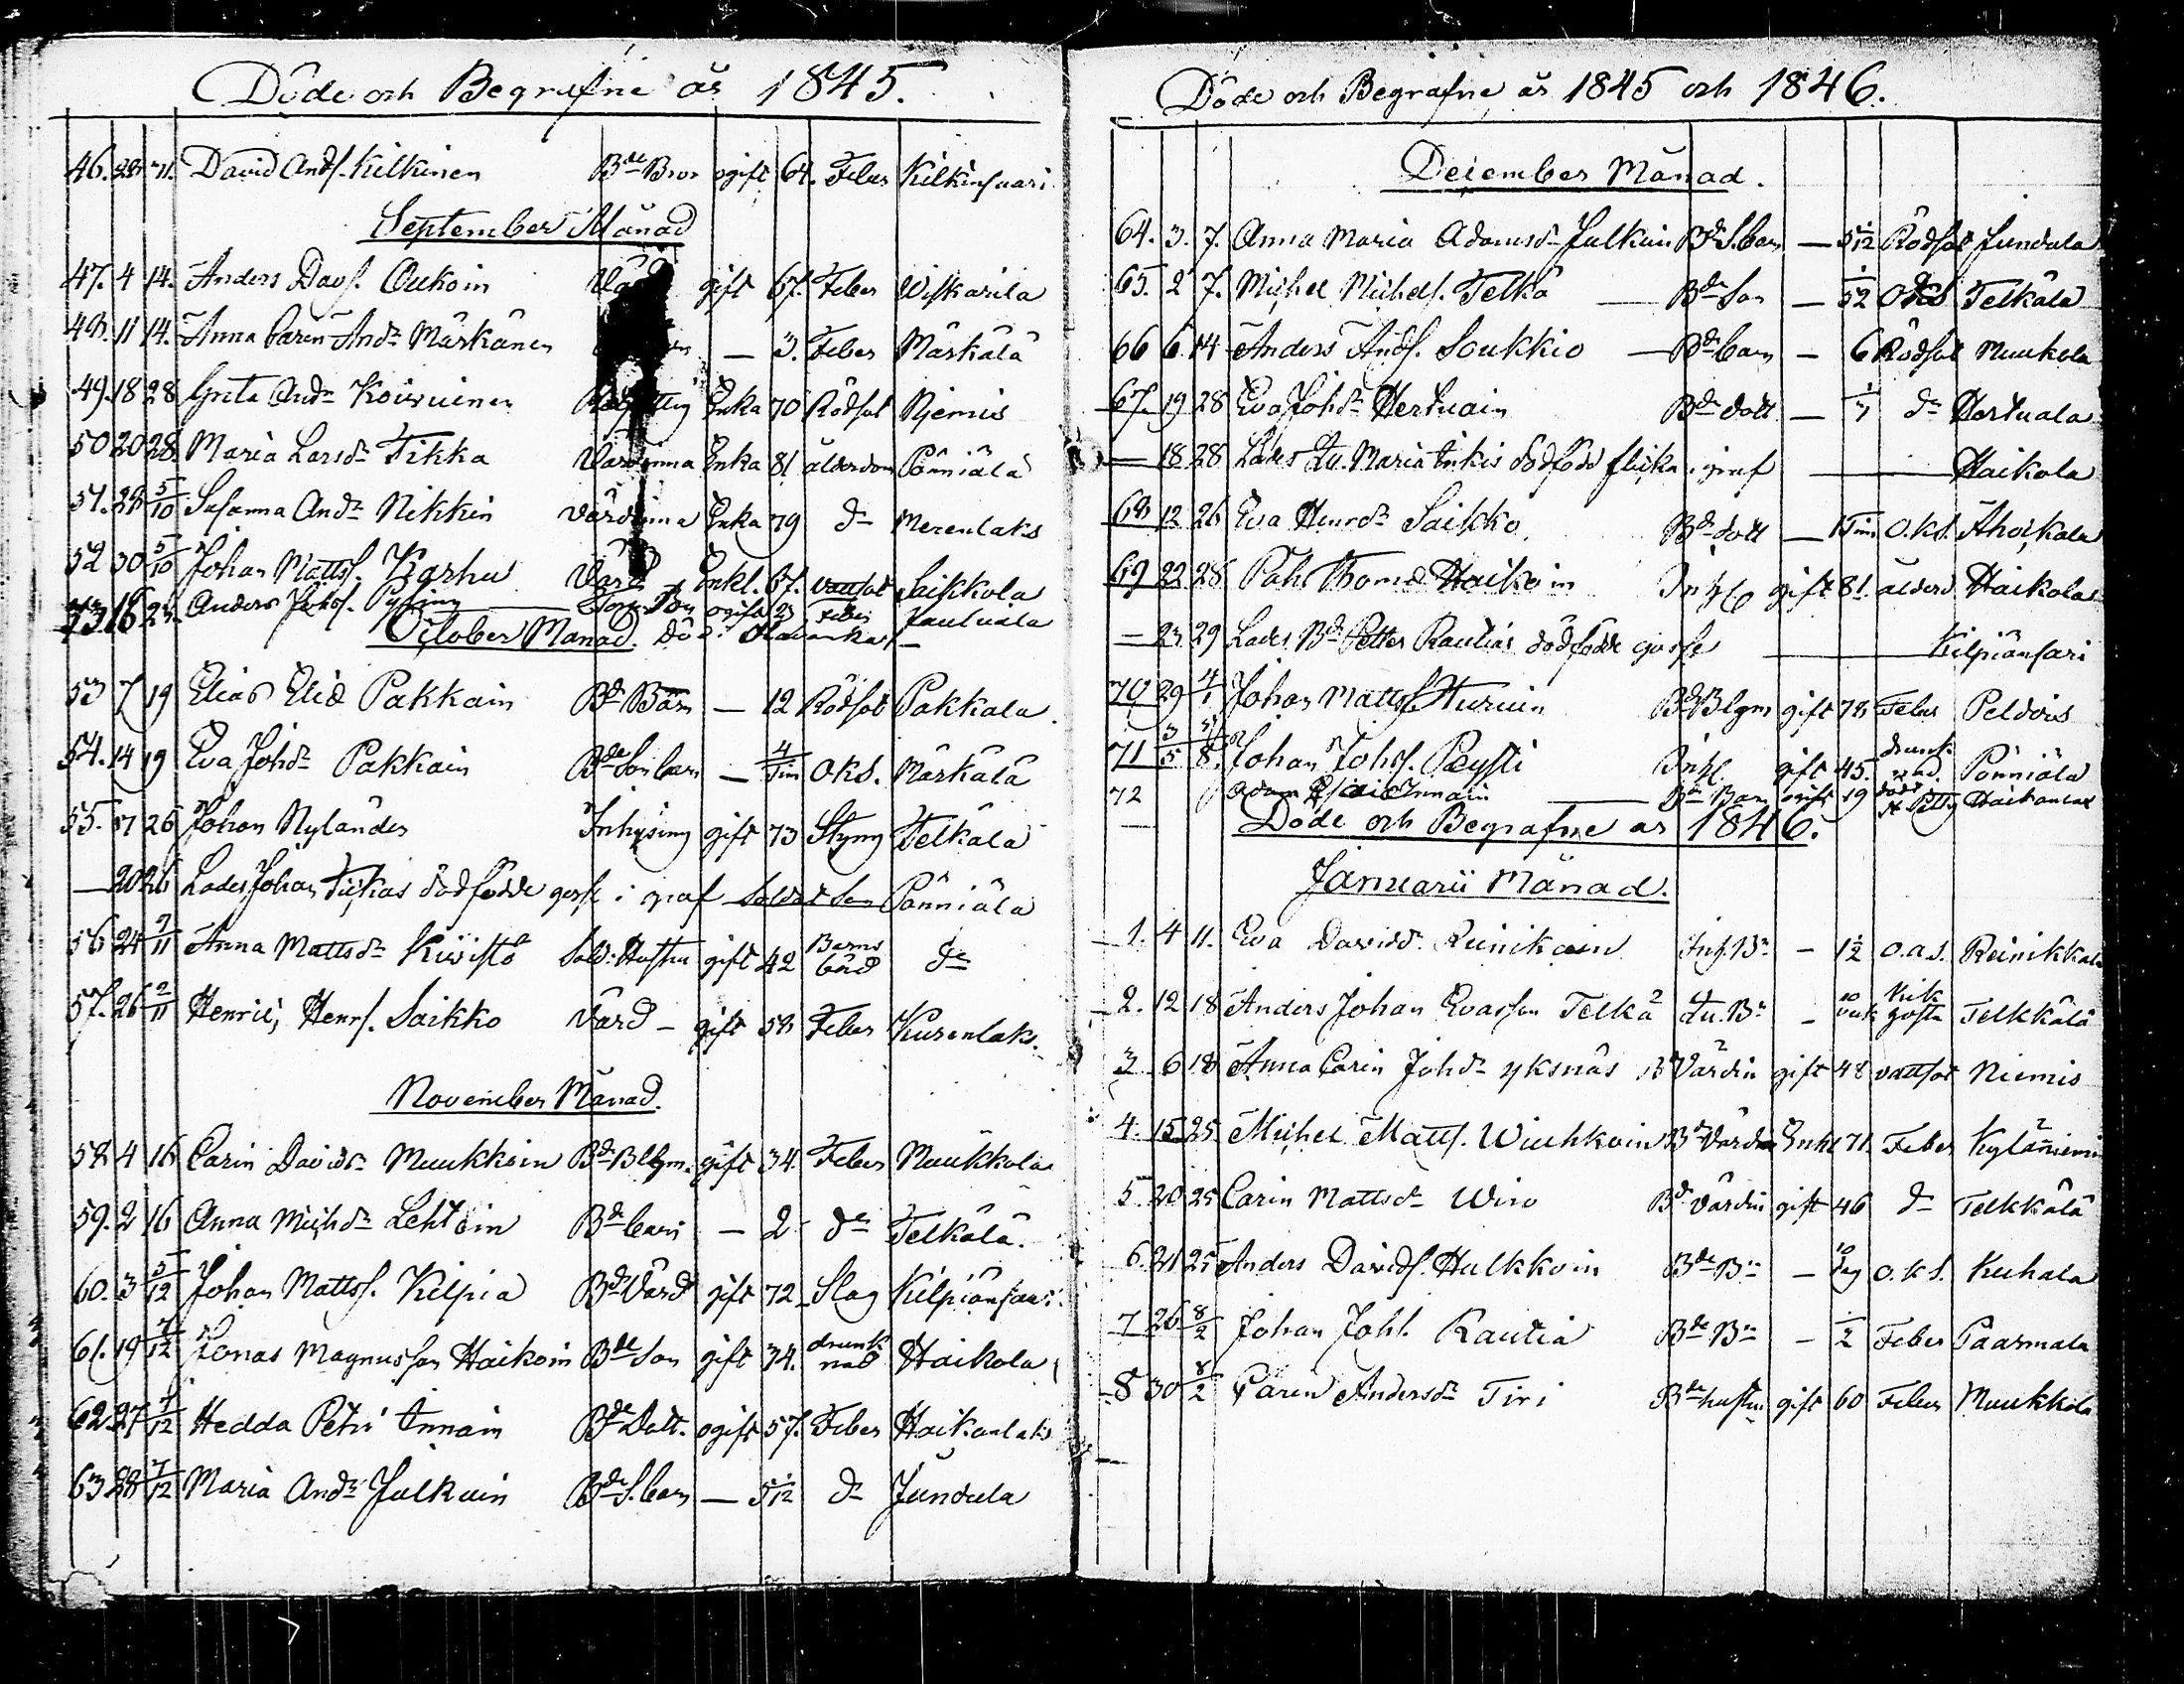 Döde och Begrafne år 1845.
46. 28 11. David Ands. Kilkinen Bde Bror ogift 64. Feber Kilkinsaari
September Månad
47. 4 14. Anders Davs. Oukoin gift 67. Feber Wiskarila
48. 11 14. Anna Caren Andr Märkänen — 3. Feber Märkälä
49. 18 28 Greta Andr Koivuinen Enka 70 Rödsot Niemis
50 20 28. Maria Larsdr Tikka Värdinna Enka 81 ålderdom Pönniälä
51. 28 5/10 Susanna Andr Nikkin Värdinna Enka 79 do Merenlaks
52 30 5/10 Johan Matts. Karhu Värd Enkl. 67. vattsot Saikkola
73 18 23. Anders Johs. ogift 23 Feber
October Månad. Dö
53 7 19 Elias Elid Pakkain Bde Barn — 12 Rödsot Pakkala
54. 14 19 Eva Johdr Pakkain Bde Son barn — 4/Tim OKS. Märkälä
55. 17 26 Johan Nylander Inhysing gift 73 Styng Telkälä
— 20 26 Lades Johan Tickas dödfödde gosse i graf Soldat Son Pönniälä
56 24 2/11 Anna Mattsdr Kiwistö Sold: Hustru gift 42 Barns börd do
57. 26 2/11 Henric, Henrs. Saikko Värd – gift 58 Feber Kurenlaks.
November Månad.
58 4 16 Carin Davidr Muukkoin Bde Blgm. gift 34. Feber Muukkola
59. 2 16 Anna Michdr Lehtoin Bde barn — 2 do Telkälä.
60. 3 5/12 Johan Matts. Kilpia Bde Värd gift 72 Slag Kilpiänsaari.
61. 19 7/12 Jonas Magnusson Haikoin Bde Son gift 34. drunk nad Haikola
62. 27 7/12 Hedda Petri Innain Bde Dott. ogift 57. Feber Haikanlaks
63 28 7/12 Maria Andr Julkuin Bde S. barn — 5/12 do Jundula
Döde och Begrafne år 1845 och 1846.
December Månad.
64. 3. 7. Anna Maria Adamsdr Julkuin Bde S. barn — 5/12 Rödsot Jundula
65. 2 7. Michel Michels. Telkä — Bde Son — 1/52 OKS Telkälä
66 6 14 Anders Ands. Soukkio — Bde barn — 6 Rödsot Muukola
67. 19 28 Eva Johdr Hertuain Bde dott — 1/7 do Hertuala
— 18 28 Lades Maria Inkis dödföd flicka i graf — Haikola
68 12 26 Eva Henrdr Saikko Bde dott — 1 Tim O.KS. Ahoikala
69 22 28 Påhl Thomas Haikoin gift 81. ålderd Haikola
— 23 29 Lades Bde Petter Rautias dödfödde gosse — Kilpiänsari
70 29 4/1 Johan Matts. Huruin Bde Blgm gift 78 Feber Peldois
71 3/5 8. Johan Johs. Peysti Inh. gift 45. drunk nad. Pönniälä
72 Adam Innain — Bde Barn ogift 19 Haikanlax
Döde och Begrafne år 1846.
Januarii Månad.
1. 4 11. Eva Davidd. Reinikain Inh. Bn – 1/2 o.a.s. Reinikkala
2. 12 18 Anders Johan Evasson Telkä Bn – 10 veck Kik hosta Telkkälä
3 6 18 Anna Carin Johdr yksnäs Bde Värdin gift 48 vattsot Niemis
4. 15 25 Michel Matts. Wiuhkoin Bde Värd Enkl 71. Feber Kyläniemi
5 20 25 Carin Mattsdr Wiro Bde Värdin gift 46 do Telkkälä
6. 21 25 Anders Davids. Hulkkoin Bde Bn – 10 dag O.K.S. Kuhala
7 26 8/2 Johan Johs. Rautia Bde Bn – 1/2 Feber Paarmala
8 30 8/2 Caren Andersdr Tiri Bde hustru gift 60 Feber Muukkola